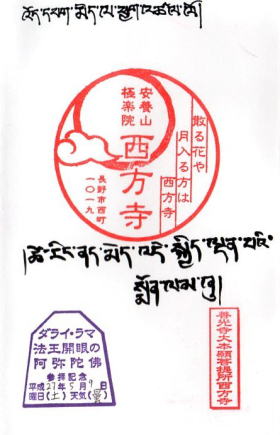 འོད་དཔག་མེད་ལ་ཕྱག་འཚལ་ལོ།
散る花や
月入る方は
西方寺
安養山
極楽院
西方寺
長野市西町
一〇一九
།ཚེ་རིང་ནད་མེད་བདེ་སྐྱིད་ལྡན་པའི་
སྨོན་ལམ་ཞུ།
善光寺大本願菩提所西方寺
ダライ・ラマ
法王開眼の
阿弥陀佛
参拝記念
平成27年5月9日
曜日(土)天気(曇)